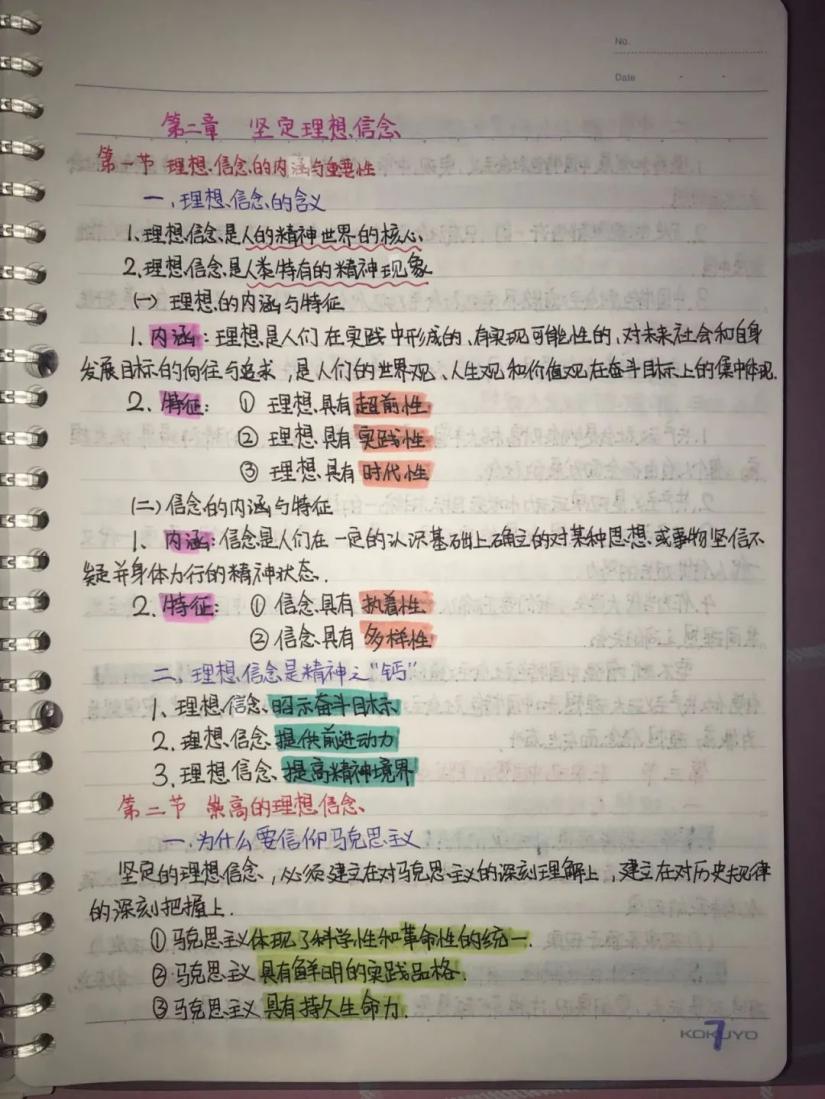 No.
Date
第二章 坚定理想信念
第一节 理想信念的内涵与重要性
一、理想信念的含义
1、理想信念是人的精神世界的核心
2、理想信念是人类特有的精神现象
(一) 理想的内涵与特征
1、内涵：理想是人们在实践中形成的、有实现可能性的、对未来社会和自身
发展目标的向往与追求，是人们的世界观、人生观和价值观在奋斗目标上的集中体现.
2、特征： ① 理想具有超前性
② 理想具有实践性
③ 理想具有时代性
(二) 信念的内涵与特征
1、内涵：信念是人们在一定的认识基础上确立的对某种思想或事物坚信不
疑并身体力行的精神状态.
2、特征： ① 信念具有执着性
② 信念具有多样性
二、理想信念是精神之“钙”
1、理想信念昭示奋斗目标
2、理想信念提供前进动力
3、理想信念提高精神境界
第二节 崇高的理想信念
一、为什么要信仰马克思主义
坚定的理想信念，必须建立在对马克思主义的深刻理解上，建立在对历史规律
的深刻把握上.
① 马克思主义体现了科学性和革命性的统一.
② 马克思主义具有鲜明的实践品格.
③ 马克思主义具有持久生命力.
KOKUYO
7